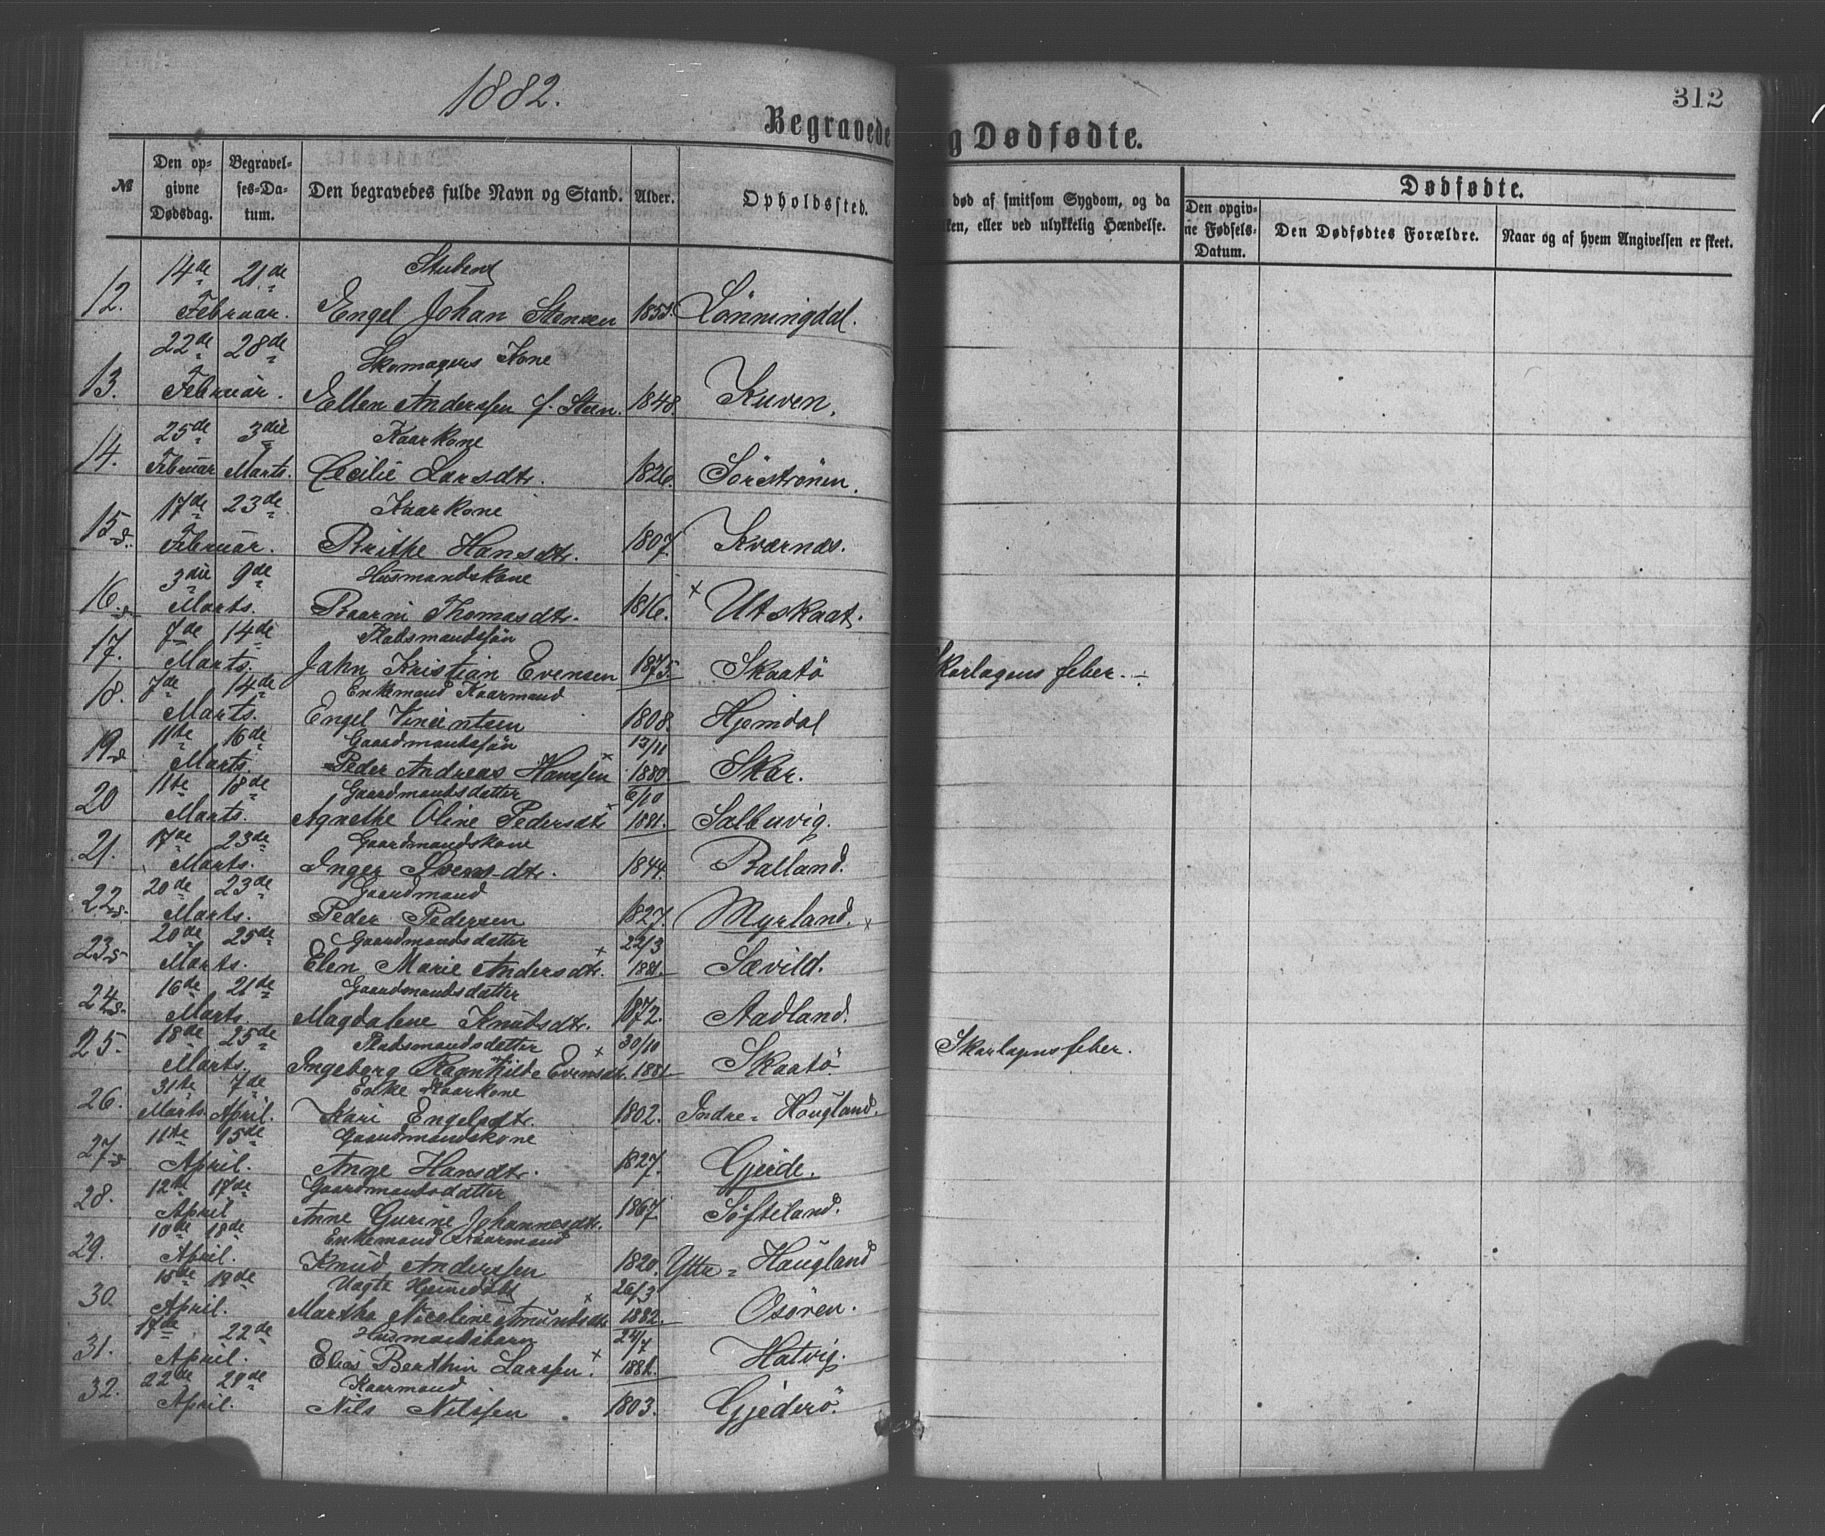 1882.
312
Begravede
g Dødfødte.
№ Den opgivne Dødsdag. Begravelses-Datum. Den begravedes fulde Navn og Stand. Alder. Opholdssted.
død af smitsom Sygdom, og da
ken, eller ved ulykkelig Hændelse.
Dødfødte.
Den opgivne Fødsels-Datum. Den Dødfødtes Forældre. Naar og af hvem Angivelsen er skeet.
14de 21de Student
12. Februar. Engel Johan Stensen Lønningdal.
22de 28de Skomagers Kone
13. Februar. Ellen Andersen f. Steen. 1848. Kuven.
25de 3die Kaarkone
14. Februar Marts. Cecilie Larsdtr. 1826. Sørstrønen.
17de 23de Kaarkone
15 Februar. Brithe Hansdtr. 1807 Kværnes.
3die 9de Husmandskone
16 Marts. Baarni Thomasdtr. 1816. Utskaat.
7de 14de Pladsmandssøn
17. Marts. Jahn Kristian Evensen 1875. Skaatø Skarlagensfeber.
7de 14de Enkemand Kaarmand
18. Marts. Engel 1808. Hjemdal
11te 16de Gaardmandssøn 13/11
19 Marts Peder Andreas Hanssen 1880 Skar.
11te 18de Gaardmandsdatter 6/10
20 Marts. Agnethe Oline Pedersdtr 1881. Salbuvig.
17de 23de Gaardmandskone
21. Marts. Inger Svensdtr. 1844. Balland.
20de 23de Gaardmand
22 Marts. Peder Pedersen 1827. Myrland.
20de 25de Gaardmandsdatter 22/3
23 Marts. Elen Marie Andersdtr. 1881. Sævild.
16de 21de Gaardmandsdatter
24 Marts. Magdalene Knudsdtr. 1872. Aadland.
18de 25de Pladsmandsdatter 30/10
25. Marts. Ingeborg Ragnhilde Evensdt. 1881 Skaatø Skarlagensfeber.
31te 7de Enke Kaarkone
26. Marts April. Kari Engelsdtr. 1802. Indre=Hougland.
11te 15de Gaardmandskone
27 April. Ange Hansdtr. 1827. Gjerde.
12te 17de Gaardmandsdatter
28. April Anne Gurine Johannesdtr. 1867 Søfteland.
10de 18de Enkemand Kaarmand
29. April. Knud Anderssen 1820. Ytre=Haugland
15de 19de Uægte Hjemedøbt 26/3
30. April. Martha Nicoline Amundsdtr 1882. Osøren.
17de 22de Husmandsbarn 24/7
31. April. Elias Berthin Larssen. 1881. Hatvig.
22de 29de Kaarmand
32. April. Nils Nilssen 1803. Gjederø.